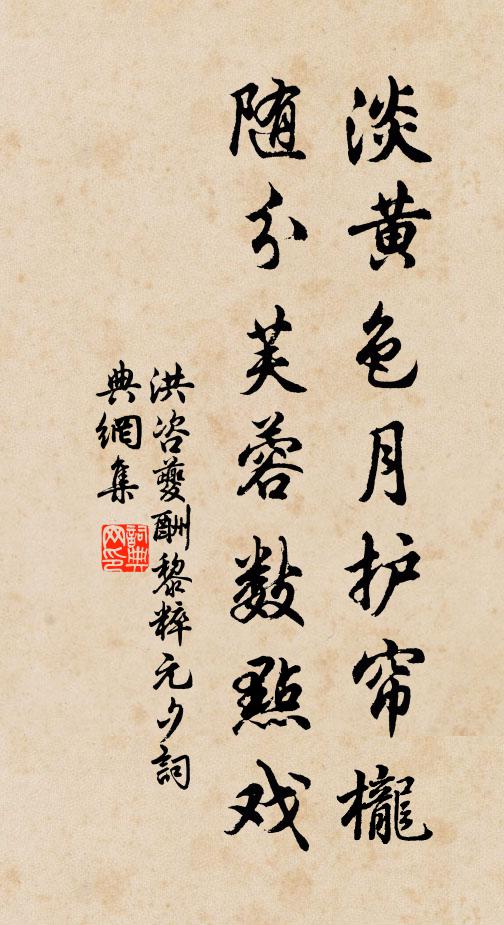 淡黄色月护帘櫳
随分芙蓉数點戏
洪咨夔酬黎粹元夕詞
典網集
詞典
网印